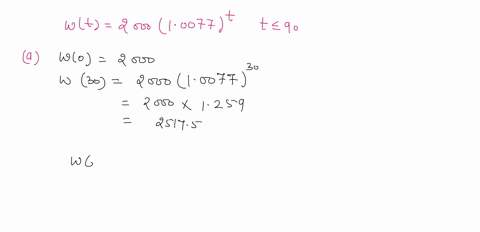 W(t) = 2000 (1.0077)^t   t ≤ 90
(a) W(0) = 2000
W (30) = 2000 (1.0077)^30
= 2000 × 1.259
= 2517.5
W(